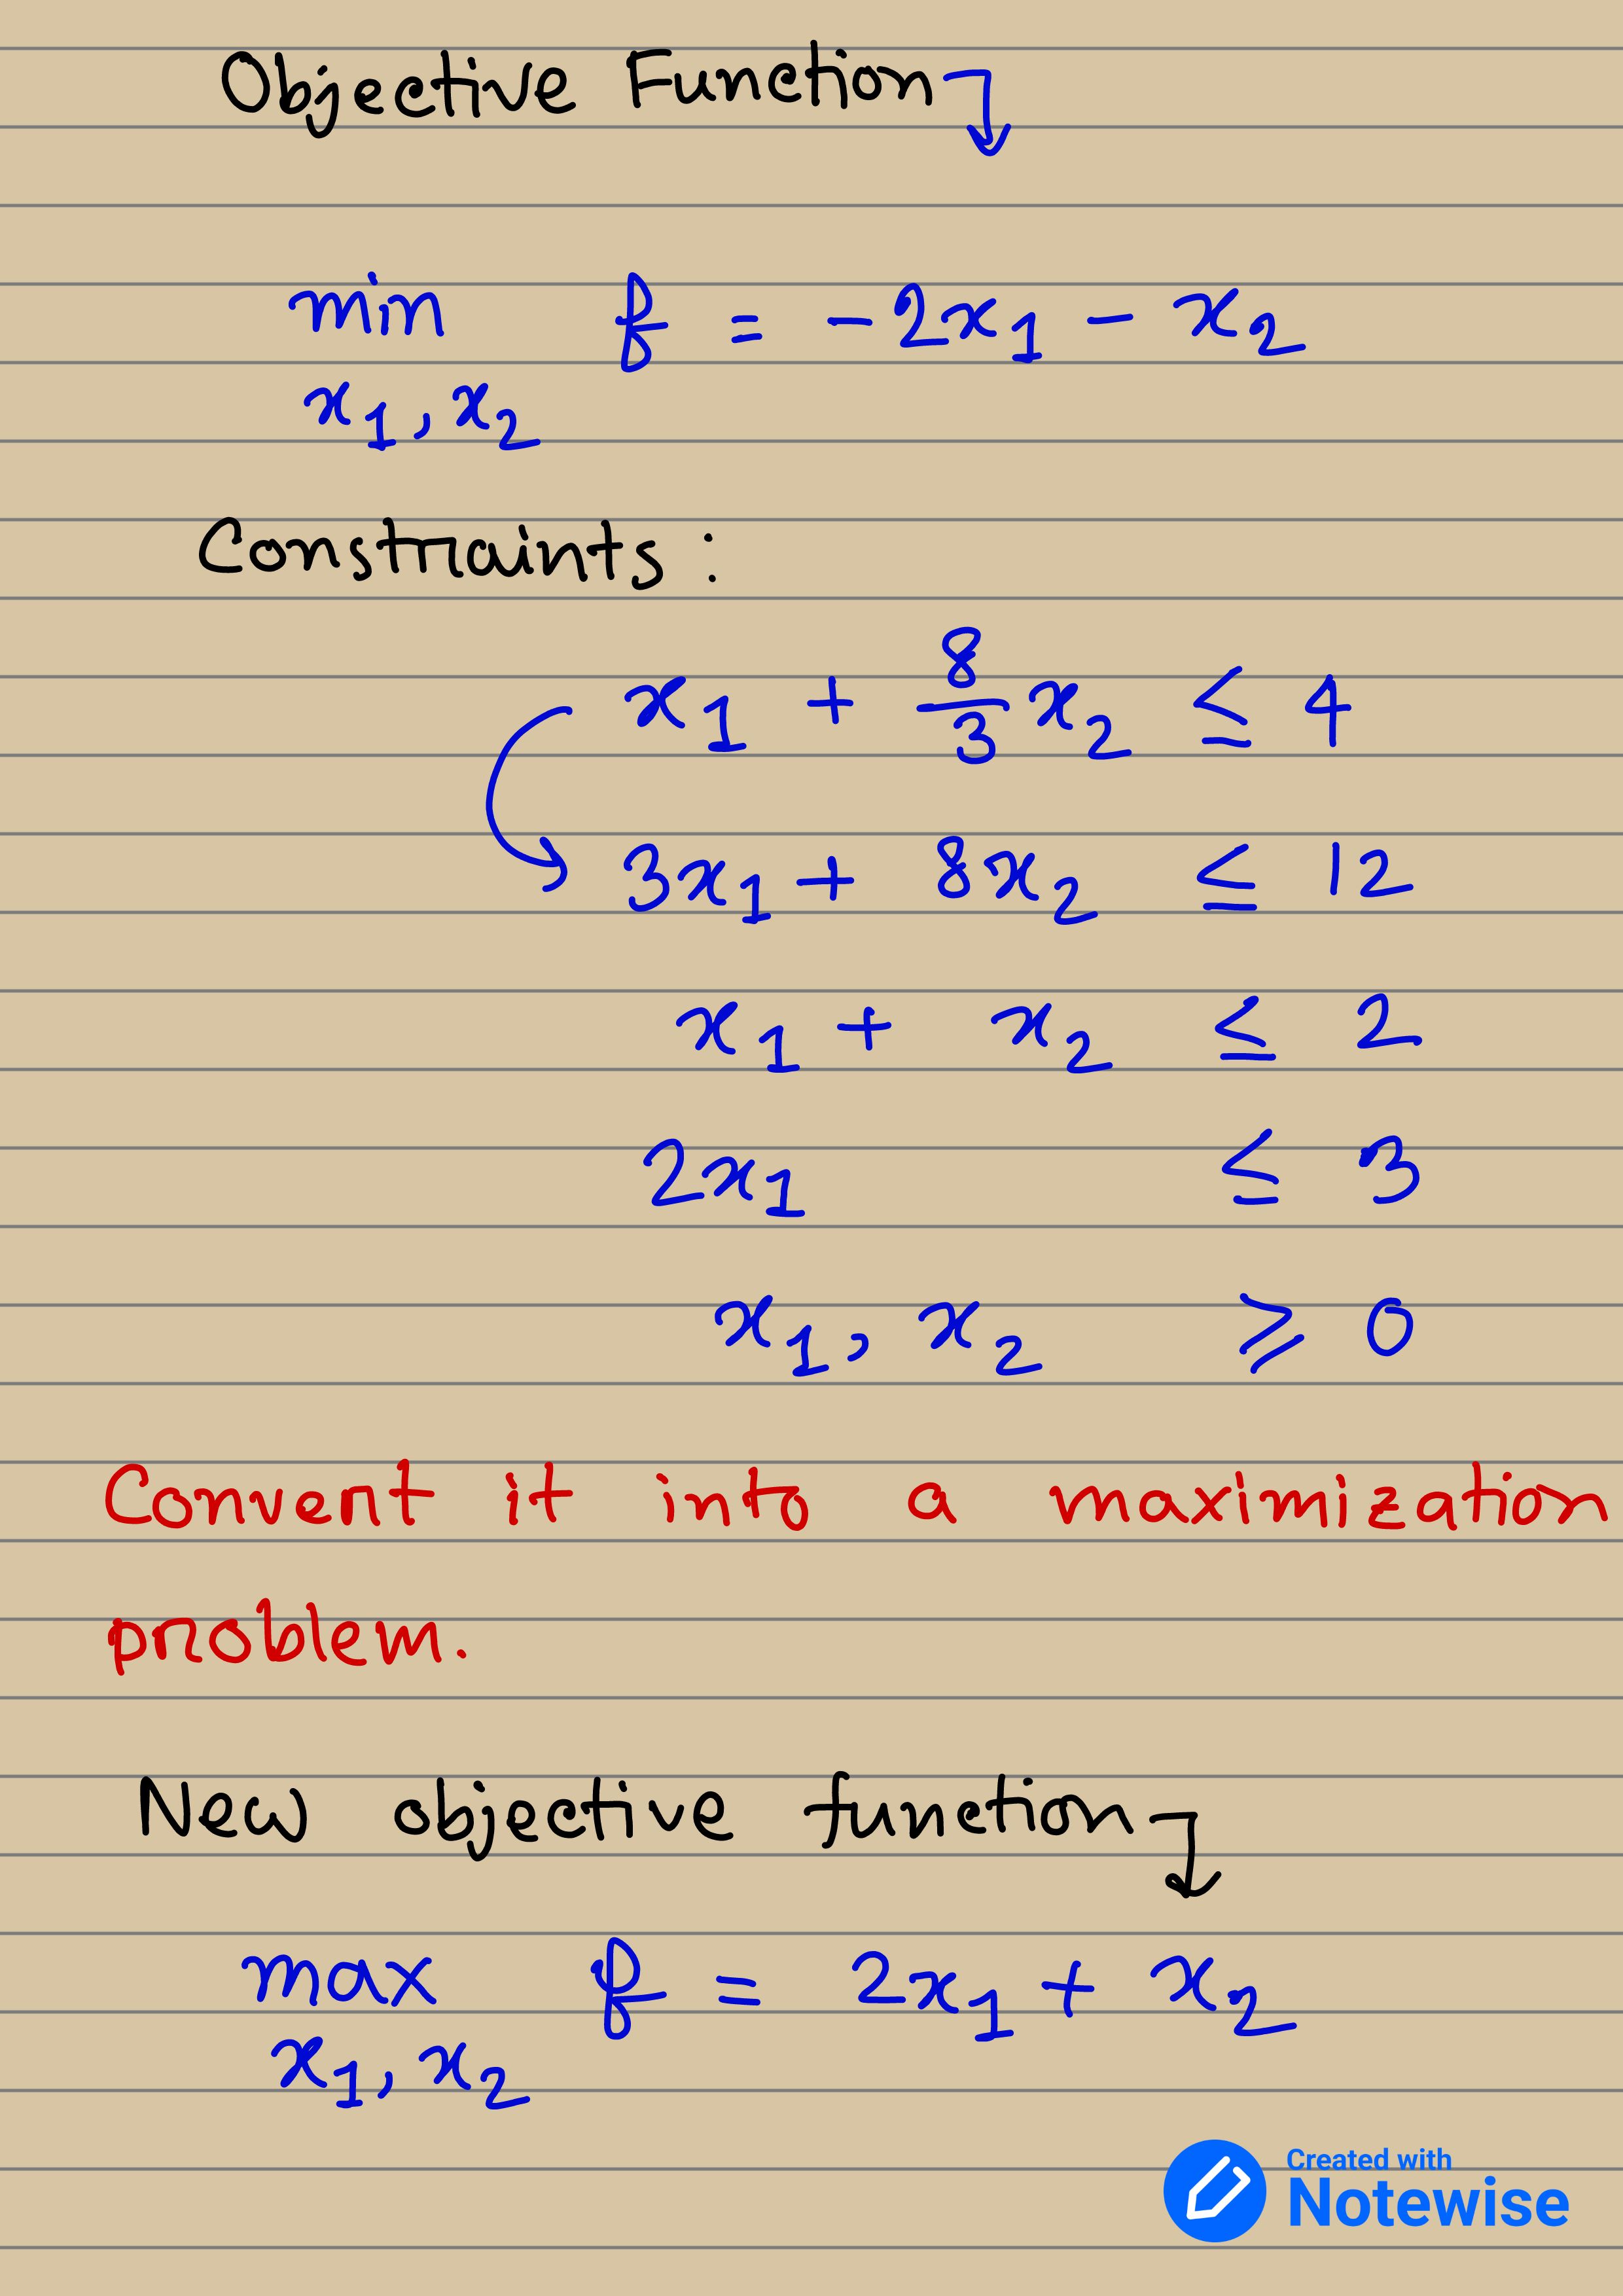 Objective Function
min f = -2x₁ - x₂
x₁, x₂
Constraints :
x₁ + 8/3 x₂ ≤ 4
3x₁ + 8x₂ ≤ 12
x₁ + x₂ ≤ 2
2x₁ ≤ 3
x₁, x₂ ≥ 0
Convert it into a maximization
problem.
New objective function
max f = 2x₁ + x₂
x₁, x₂
Created with
Notewise